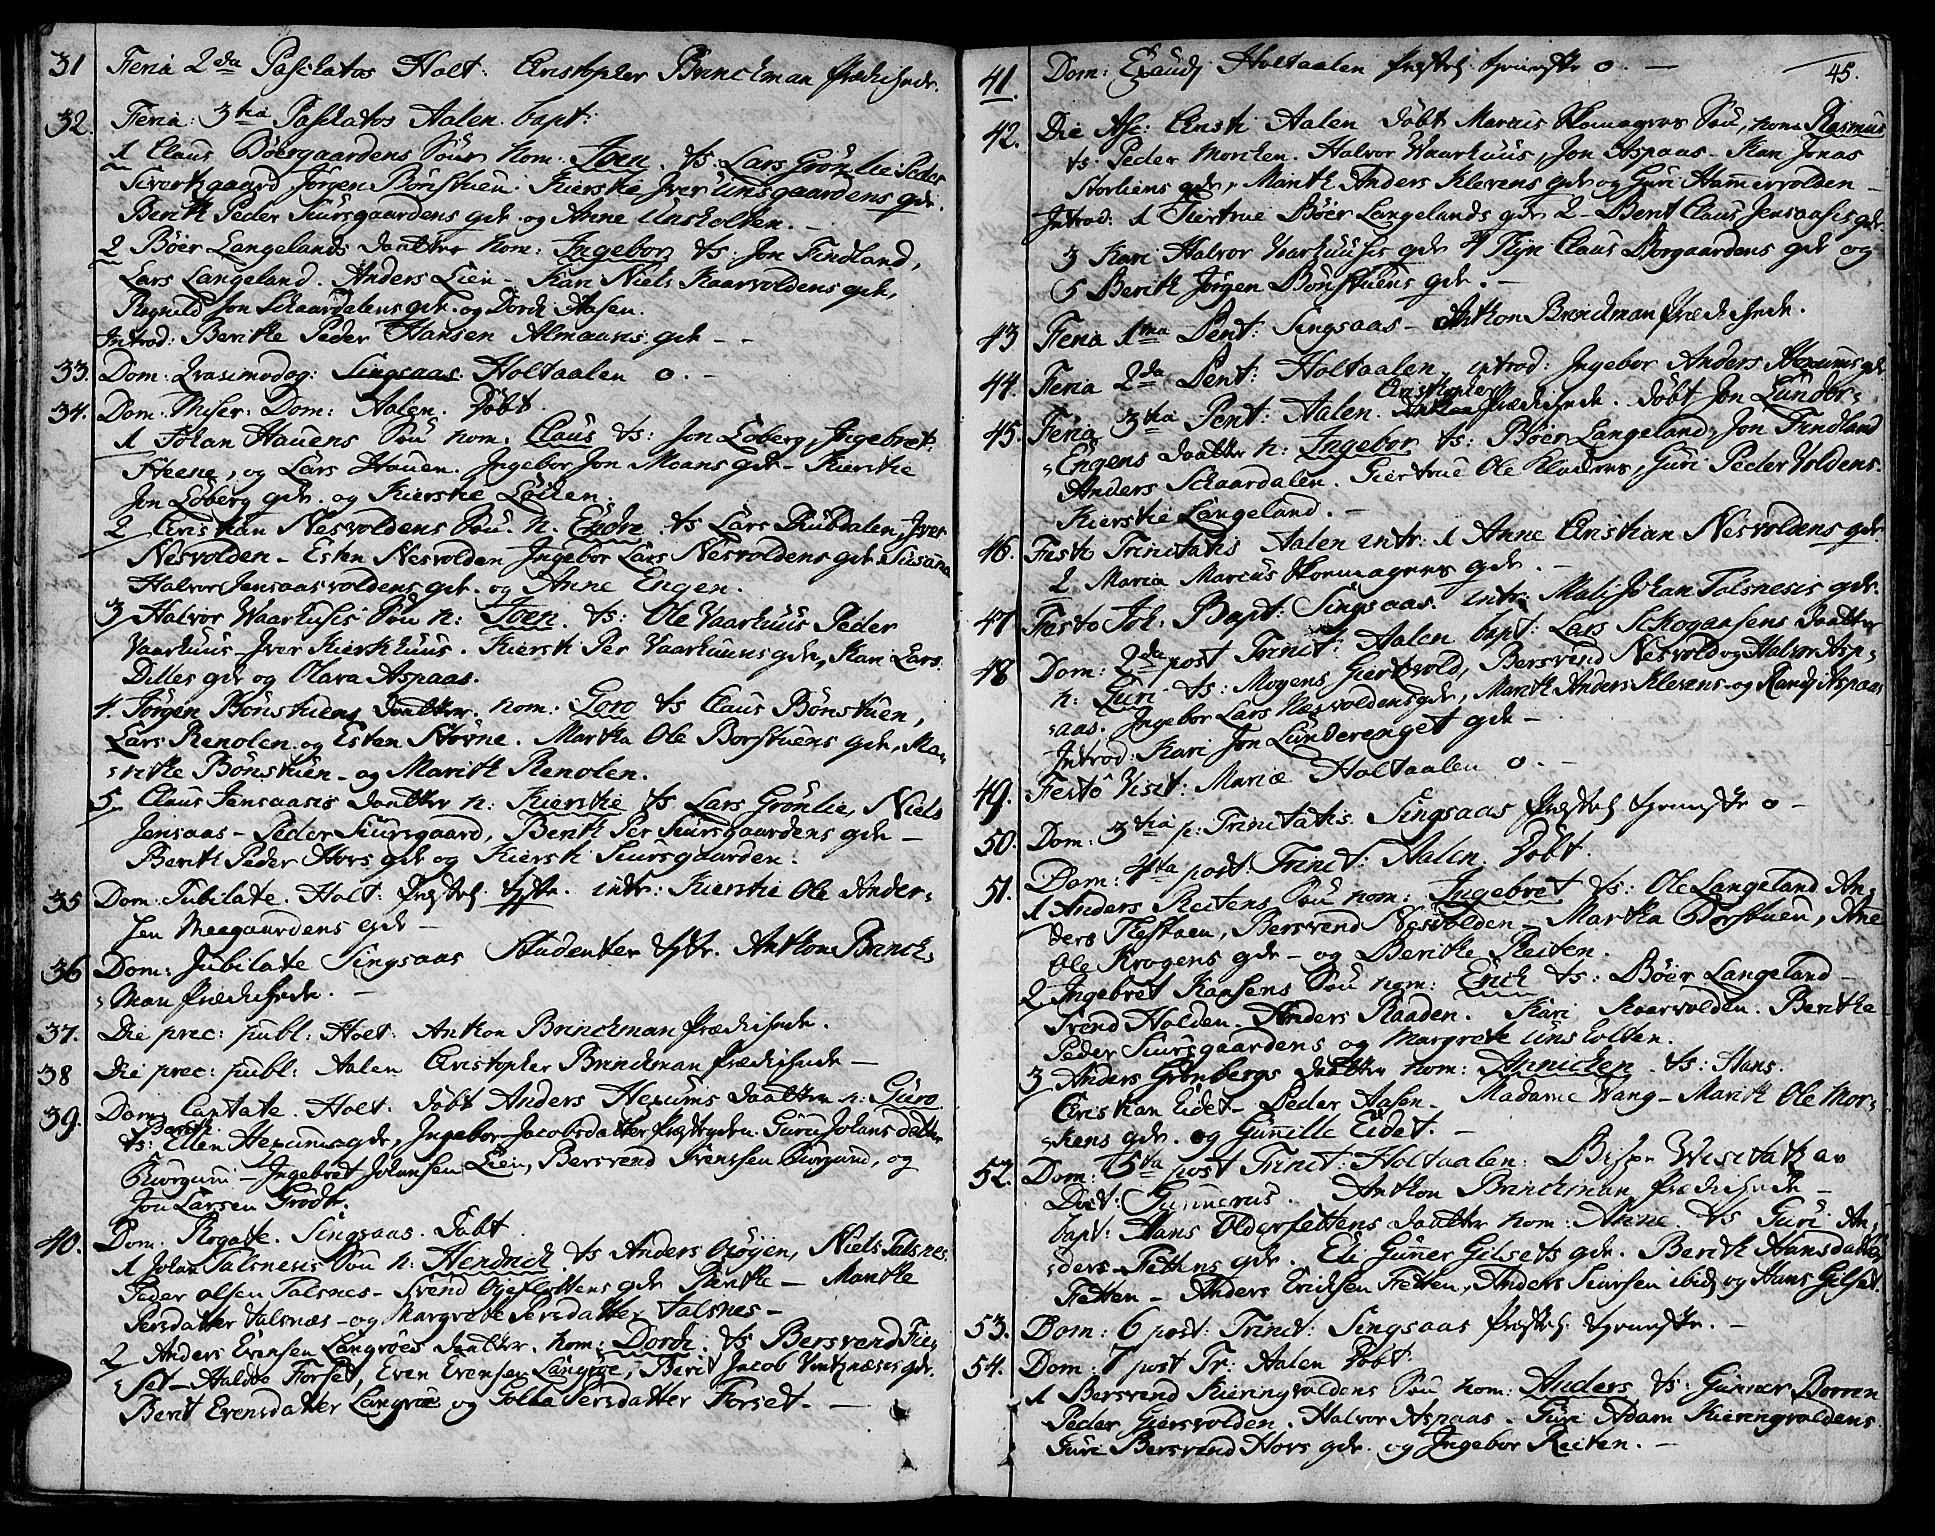 31 Feria 2da Paschatos Holt: Christopher Brinckman prædikende.
32. Feria: 3tia Paschatos Aalen. bapt:
1 Claus Böergaardens Sön nom: Joen. ts: Lars Grönlie Peder
Sivertsgaard Jörgen Bönstuen. Kierstie Iver Unsgaardens qde.
Berith Peder Siursgaardens qde. og Anne Unsholten. -
2 Böer Langelands Daatter nom: Ingebor ts: Jon Findland,
Lars Langeland. Anders Lien - Kari Niels Kaarvoldens qde,
Ragnild Jon Schaardalens qde. og Dordi Aasen.
Introd: Berithe Peder Hansen Almaaess qde - -
33. Dom: Qvasimodog: Singsaas. Holtaalen o. -
34. Dom. Miser: Dom: Aalen. Döbt.
1 Johan Hauens Sön nom. Claus ts: Jon Loberg, Ingebret
Heene, og Lars Hauen. Ingebor Jon Moans qde - Kierstie
Jon Loberg qde. og Kierstie Löcken.
2 Christian Nesvoldens Sön. n: Endre ts Lars Dubdalen, Iver
Nesvolden - Esten Nesvolden Ingebor Lars Nesvoldens qde, Susanna
Halvor Jensaasvoldens qde. og Anne Engen.
3 Halvor Waarhusis Sön n: Joen. ts: Ole Vaarhuus Peder
Vaarhuus - Iver Kierchuus. Kiersti Per Vaarhuuns qde, Kari Lars
Dilles qde og Olava Aspaas.
4. Jörgen Bönstuens Daatter. nom: Goro ts Claus Bönstuen,
Lars Renolen. og Esten Stövne. Martha Ole Borstuens qde, Ma-
rithe Bönstuen - og Marith Renolen.
5. Claus Jensaasis Daatter n: Kierstie ts Lars Grönlie, Niels
Jensaas - Peder Siursgaard, Berith Per Siursgaardens qde -
Berith Peder Hovs qde og Kiersti Siursgaarden.
35 Dom: Jubilate. Holt: intr: Kierstie Ole Ander-
sen Meegaardens qde -
36 Dom: Jubilate Singsaas Studenter Anthon Brinck-
man prædikede. -
37. Die prec: publ: Holt: Anthon Brinckman prædikede.
38 Die prec: publ: Aalen Christopher Brinckman prædikede -
39. Dom. Cantate. Holt. Döbt Anders Hexums Daatter n: Guro
ts: Berith Ellen Hexums qde, Ingebor Jacobsdatter Guru Johansdatter
Ingebret Johansen Lien, Bersvend Svenssen, og
Jon Larsen Grodt.
40. Dom. Rogate. Singsaas. Döbt
1 Johan Talsnesis Sön n: Hendrich. ts Anders Osöyen, Niels Talsnes.
Peder Olsen Talsnes - Svend Öyeflottens qde - Marithe
Persdatter Talsnæs - og Margrethe Persdatter Talsnes -
2 Anders Evensen Langröes Daatter. nom: Dordi. ts Bersvend Fie-
set - Haldoe Forset, Even Evensen Langröe, Berit Jacob Vintznæsis qde.
Berit Evensdatter Langröe og Golla Persdatter Forset. -
45.
41. Dom: Exaudi Holtaalen o. -
42. Die Asc: Christi Aalen Döbt Marcus Homagers Sön, nom: Rasmus
ts: Peder Morchen. Halvor Waarhuus, Jon Aspaas. Kari Jonas
Storliens qde, Marith Anders Klevens qde og Guri Hamervolden -
Introd: 1 Giertrue Böer Langelands qde 2 - Berit Claus Jensaasis qde.
3 Kari Halvor Vaarhuusis qde 4 Thyri Claus Borgaardens qde og
5 Berith Jörgen Bönstuens qde. -
43 Feria 1ma Pent: Singsaas - Anthon Brinckman prædikede.
44. Feria 2da Pent: Holtaalen, introd: Ingebor Anders Hexums qde
45. Feria 3tia Pent: Aalen. Christopher prædikede. Döbt Jon Lunder-
Engens Daatter n: Ingebor ts: Böer Langeland, Jon Findland
Anders Schaardalen. Giertrue Ole Kladerus, Guri Peder Voldens.
Kierstie Langeland. -
46. Festo Trinitatis Aalen intr: 1 Anne Christian Nesvoldens qde
2. Maria Marcus Homagers qde. -
47 Festo Joh: Bapt: Singsaas. intr: Mali Johan Talsnesis qde.
48 Dom: 2da post Trinit: Aalen bapt: Lars Schogaasens Daatter
n: Guri ts: Mogens Giertvold, Bersvend Nesvold og Halvor Asp-
aas. Ingebor Lars Næsvoldens qde, Marith Anders Klevens og Randi Aspaas
Introd: Kari Jon Lunderenget qde -
49. Festo Visit: Mariæ Holtaalen o. -
50. Dom: 3tia p: Trinitatis Singsaas o -
51. Dom: 4ta post: Trinit: Aalen. Döbt.
1 Anders Reitens Sön nom: Ingebret ts: Ole Langeland An-
ders Flestaen, Bersvend Nesvolden - Martha Borstuen, Ane
Ole Krogens qde - og Berithe Reiten.
2 Ingebret Kaasens Sön nom: Erich ts: Böer Langeland -
Svend Holden. Anders Raaden. Kari Kvarvolden. Berithe
Peder Siursgaardens og Margrete Unsholten.
3. Anders Grönbergs Daatter nom: Annichen ts: Hans.
Christian Eidet - Peder Aasen. Madame Wang - Marith Ole Mor-
kens qde. og Gunille Eidet. -
52. Dom: 5ta post Trinit: Holtaalen: Bisp Visitatz av
Doct: Gunnerus. Anthon Brinckman prædikede -
bapt: Hans Olderfettens Daatter nom: Anne. ts Guri An-
ders Fettens qde. Eli Guner Gilsets qde. Berith Hansdatter
Fetten - Anders Erichsen Fetten, Anders Siursen ibid, og Hans Gilset.
53. Dom: 6 post: Trinit: Singsaas -
54. Dom: 7 post Tr: Aalen Döbt.
1 Bersvend Kieringvoldens Sön nom: Anders ts: Gunner Borren
Peder Giersvolden. Halvor Aspaas. Guri Adam Kieringvoldens
Guri Bersvend Hovs qde. og Ingebor Reiten. -